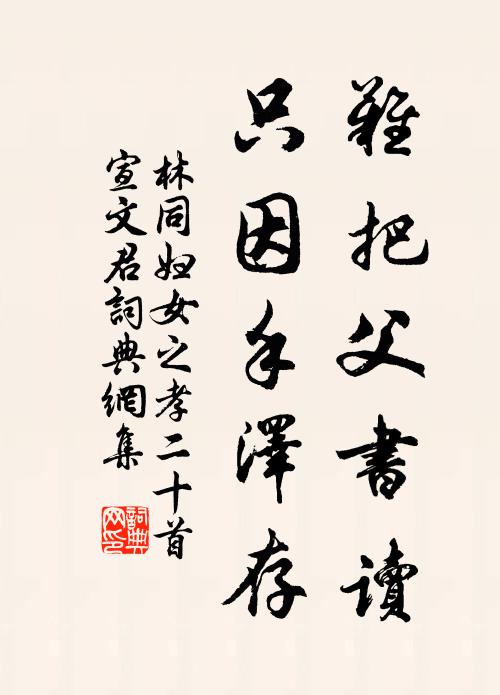 難把父書讀
只因手澤存
林同婦女之孝二十首
宣文君詞典網集
詞典網印